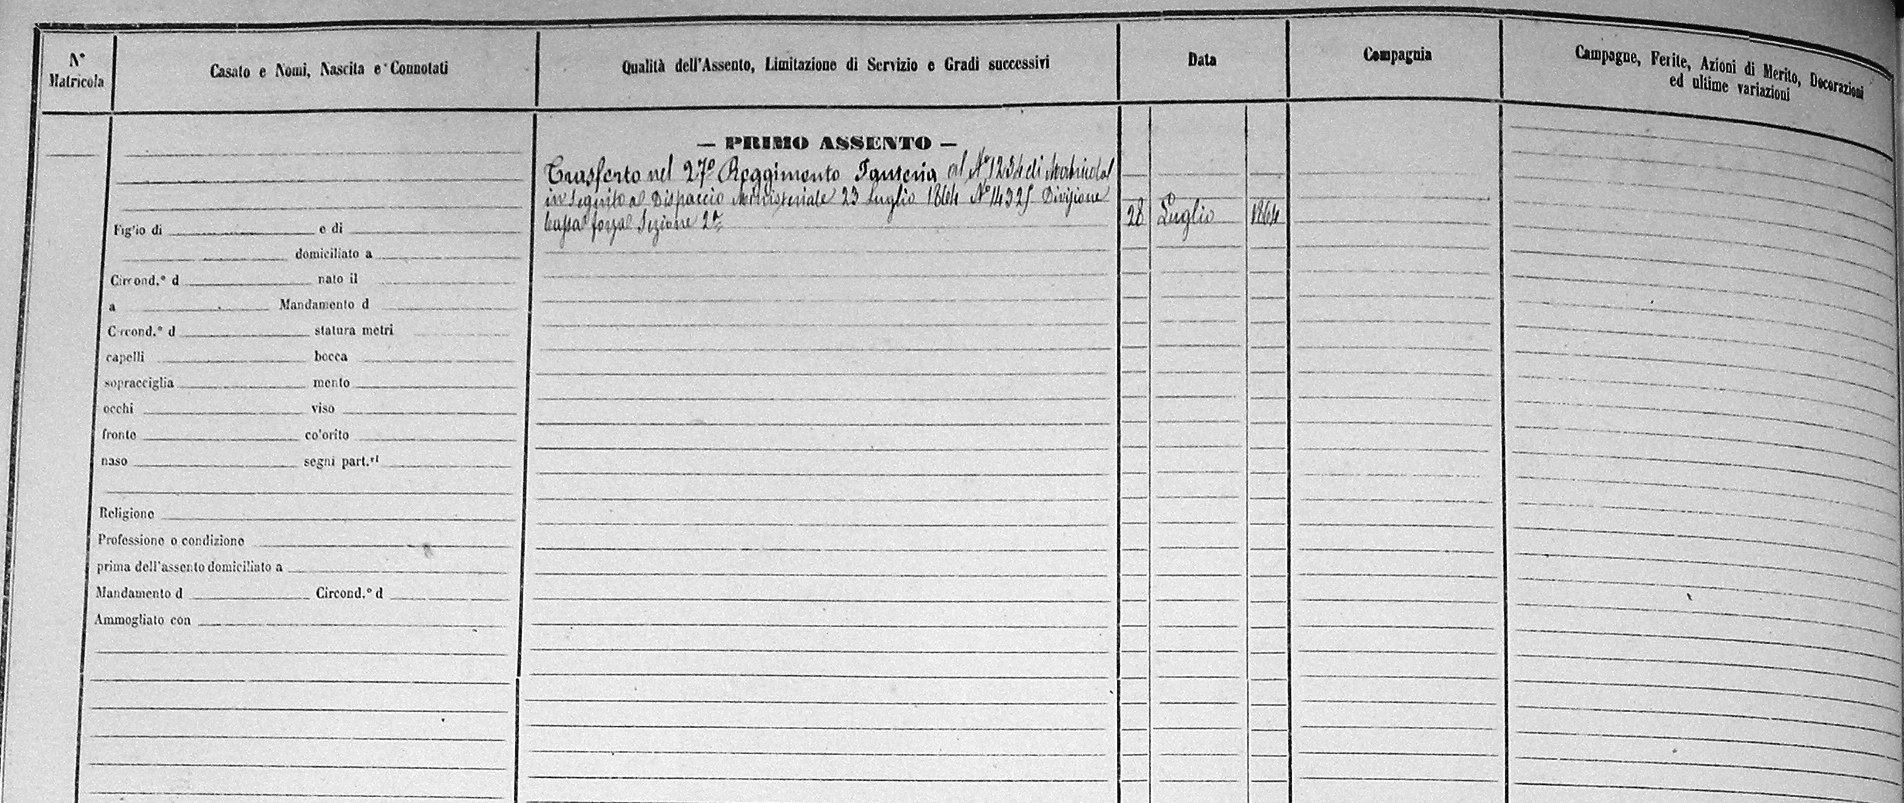 N° Matricola
Casato e Nomi, Nascita e Connotati
Qualità dell'Assento, Limitazione di Servizio e Gradi successivi
Data
Compagnia
Campagne, Ferite, Azioni di Merito, Decorazioni
ed ultime variazioni
— PRIMO ASSENTO —
Trasferto nel 27° Reggimento Fanteria al N° 1234 di Matricola
in Seguito al Dispaccio Ministeriale 23 Luglio 1864 N° 14325 Divisione
bassa forza Sezione 2ª
28 Luglio 1864
Figlio di e di
domiciliato a
Circond.° d nato il
a Mandamento d
Circond.° d statura metri
capelli bocca
sopracciglia mento
occhi viso
fronte colorito
naso segni part.ri
Religione
Professione o condizione
prima dell'assento domiciliato a
Mandamento d Circond.° d
Ammogliato con